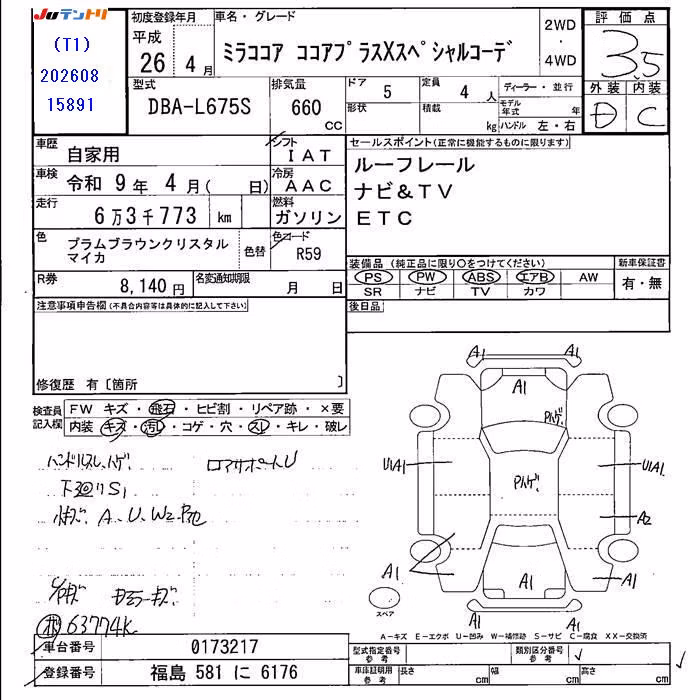 JUテントリ
(T1)
202608
15891
初度登録年月
平成
26 4月
車名・グレード
ミラココア ココアプラスXスペシャルコーデ
2WD
・
4WD
評価点
3.5
外装 内装
D C
型式
DBA-L675S
排気量
660
cc
ドア
5
形状
定員
4 人
積載
kg
ディーラー・並行
モデル年式 年
ハンドル 左・右
車歴
自家用
シフト
IAT
車検
令和 9年 4月( 日)
冷房
AAC
走行
6万3千773 km
燃料
ガソリン
色
プラムブラウンクリスタル
マイカ
色替
色コード
R59
R券
8,140円
名変通知期限
月 日
セールスポイント(正常に機能するものに限ります)
ルーフレール
ナビ&TV
ETC
装備品(純正品に限り○をつけてください)
PS PW ABS エアB AW
SR ナビ TV カワ
新車保証書
有・無
後日品
注意事項申告欄(不具合内容等は具体的に記入して下さい)
修復歴 有〔箇所 〕
検査員
記入欄
FW キズ・飛石・ヒビ割・リペア跡・×要
内装 キズ・汚れ・コゲ・穴・スレ・キレ・破レ
ハンドルスレ、ハゲ
ロアサポートU
下廻りS1
小キズ、A、U、W2、P他
63774K
A1 A1
A1
Pハゲ
U1A1
Pハゲ
U1A1
A2
A1
A1
A1
A1 A1
スペア
A-キズ E-エクボ U-凹み W-補修跡 S-サビ C-腐食 XX-交換済
車台番号
0173217
型式指定番号
参考
類別区分番号
参考
登録番号
福島 581 に 6176
車庫証明用
参考
長さ cm
幅 cm
高さ cm